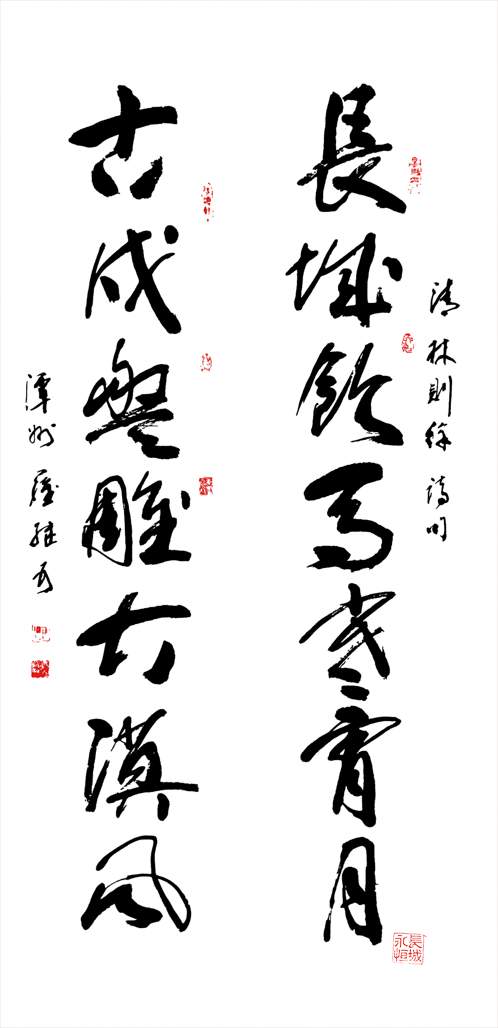 清林則徐詩句
長城飲馬寒宵月
古戍盤雕大漠風
潭州
長城永恒